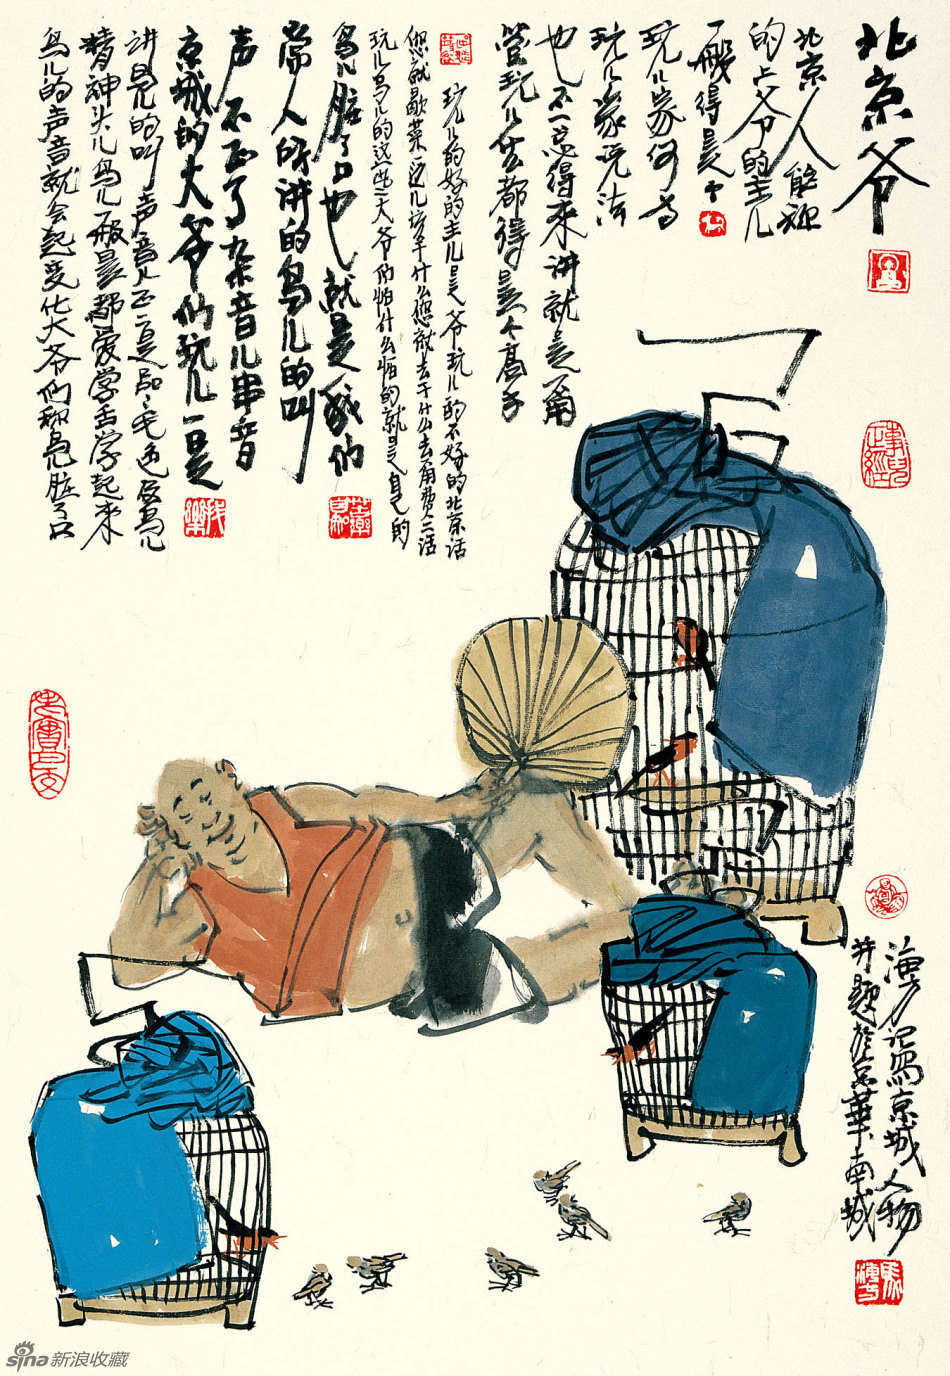 北京爷
北京人能称
的上爷的主儿
一般得是个
玩儿家何为
玩儿家说法
也不一总得来讲就是甭
管玩儿什么都得是个高手
玩儿的好的主儿是爷玩儿的不好的北京话
您就歇菜这儿该干什么您就去干什么去甭费二话
玩儿鸟儿的这些大爷们怕什么怕的就是自己的
鸟儿脏了口也就是我们
常人所讲的鸟儿的叫
声不正了杂音儿串音
京城的大爷们玩儿一是
讲鸟儿的叫声音正二是品毛色 鸟儿
精神头儿鸟儿一般是都爱学舌学起来
鸟儿的声音就会起变化大爷们称鸟儿脏了口
海方记写京城人物
并题於京華南城
sina新浪收藏